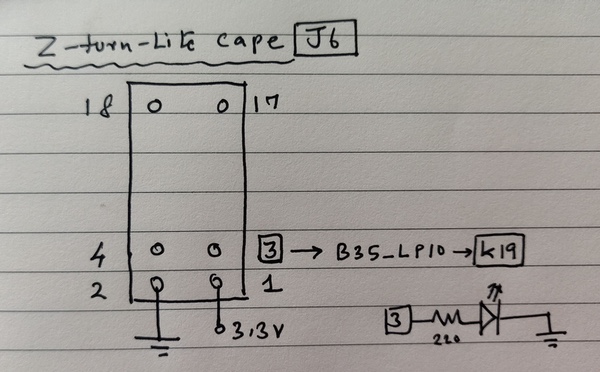 Z-turn-Lite cape J6
18 17
4 3 → B35_LP10 → K19
2 1
3.3V
3
220